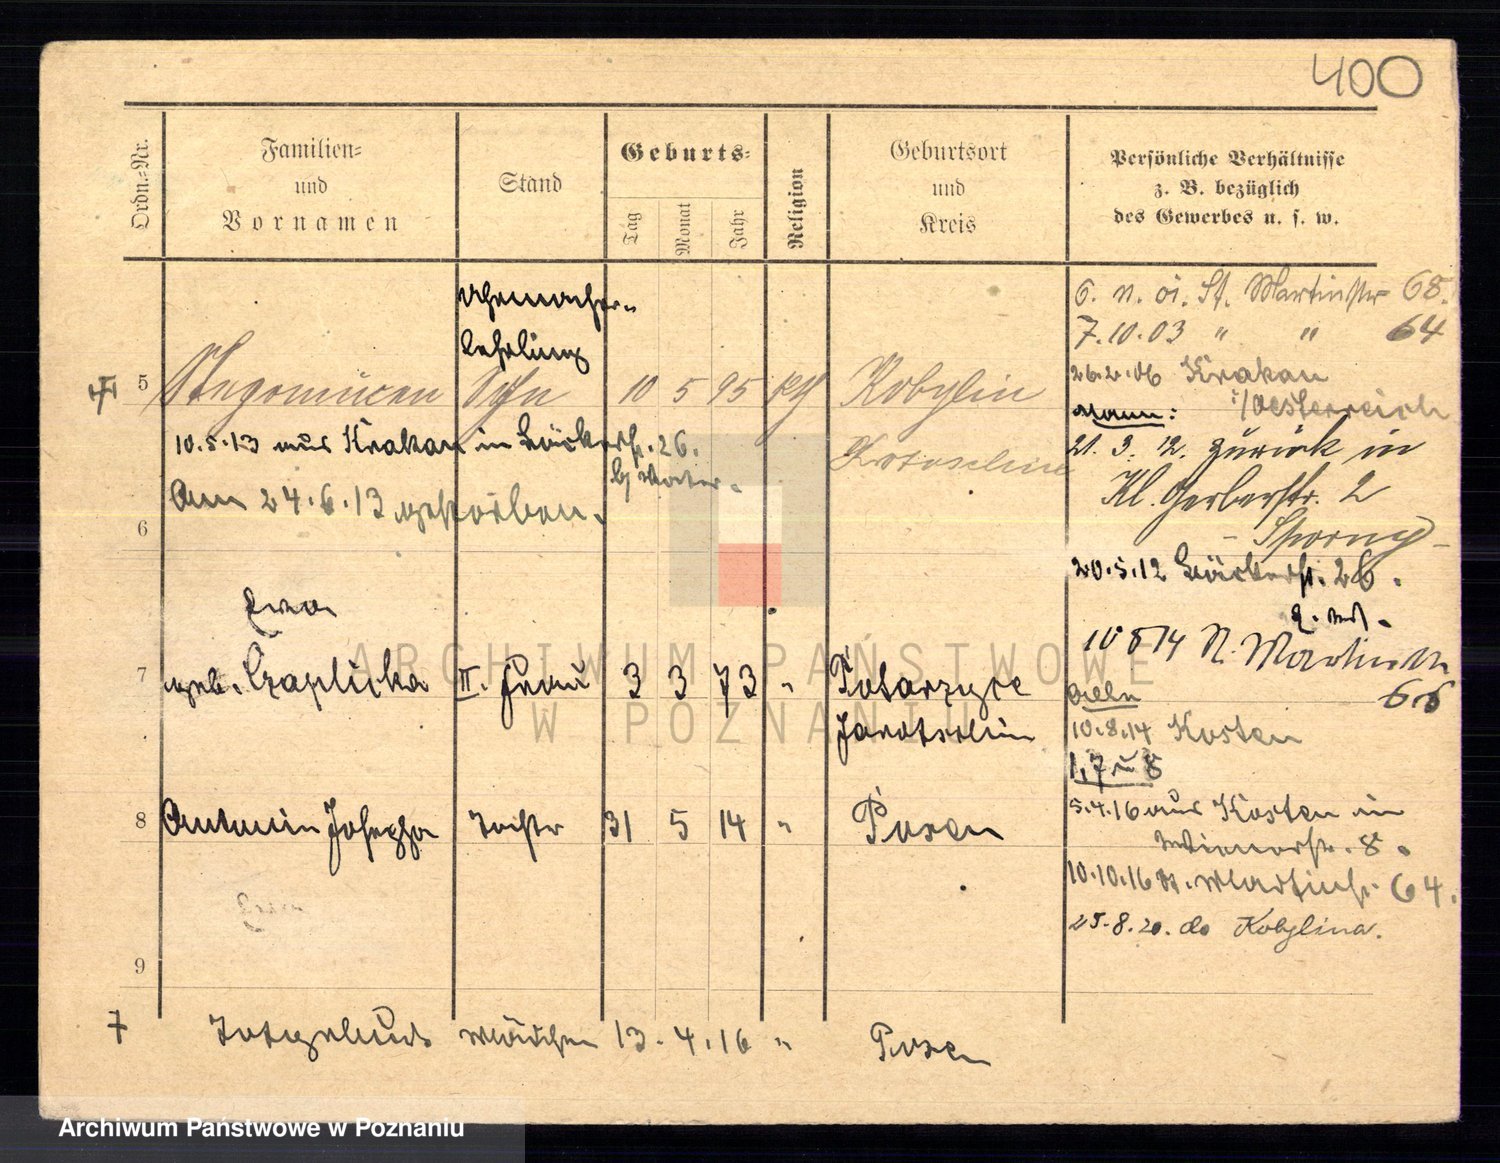 400
Ordn.-Nr.
Familien-
und
Vornamen
Stand
Geburts-
Tag
Monat
Jahr
Religion
Geburtsort
und
Kreis
Persönliche Verhältnisse
z. B. bezüglich
des Gewerbes u. s. w.
Uhrmacher-
Lehrling
5 Sohn 10 5 95 kth Kobylin
Krotoschin
10.5.13 aus Krakau in Bäckerstr. 26.
b/ Vater.
Am 24.6.13 gestorben.
6
Ewa
7 geb. Czaplicka II. Frau 3 3 73 " Potarzyce
Jarotschin
8 Antonin Josepha Tochter 31 5 14 " Posen
9
Totgeburt Mädchen 13. 4. 16 " Posen
St. Martinstr 68.
7.10.03 " " 64
26.2.06 Krakau
Oesterreich
Mann:
21. 3. 12. zurück in
Kl. Gerberstr. 2
- Sporny -
20.5.12 Bäckerstr. 26.
10 8 14 St. Martinstr
66
Allein
10.8.14 Kosten
1, 7 u 8
5.4.16 aus Kosten in
Wienerstr. 8.
10.10.16 St. Martinstr. 64.
25.8.20. do Kobylina.
ARCHIWUM PAŃSTWOWE
W POZNANIU
Archiwum Państwowe w Poznaniu